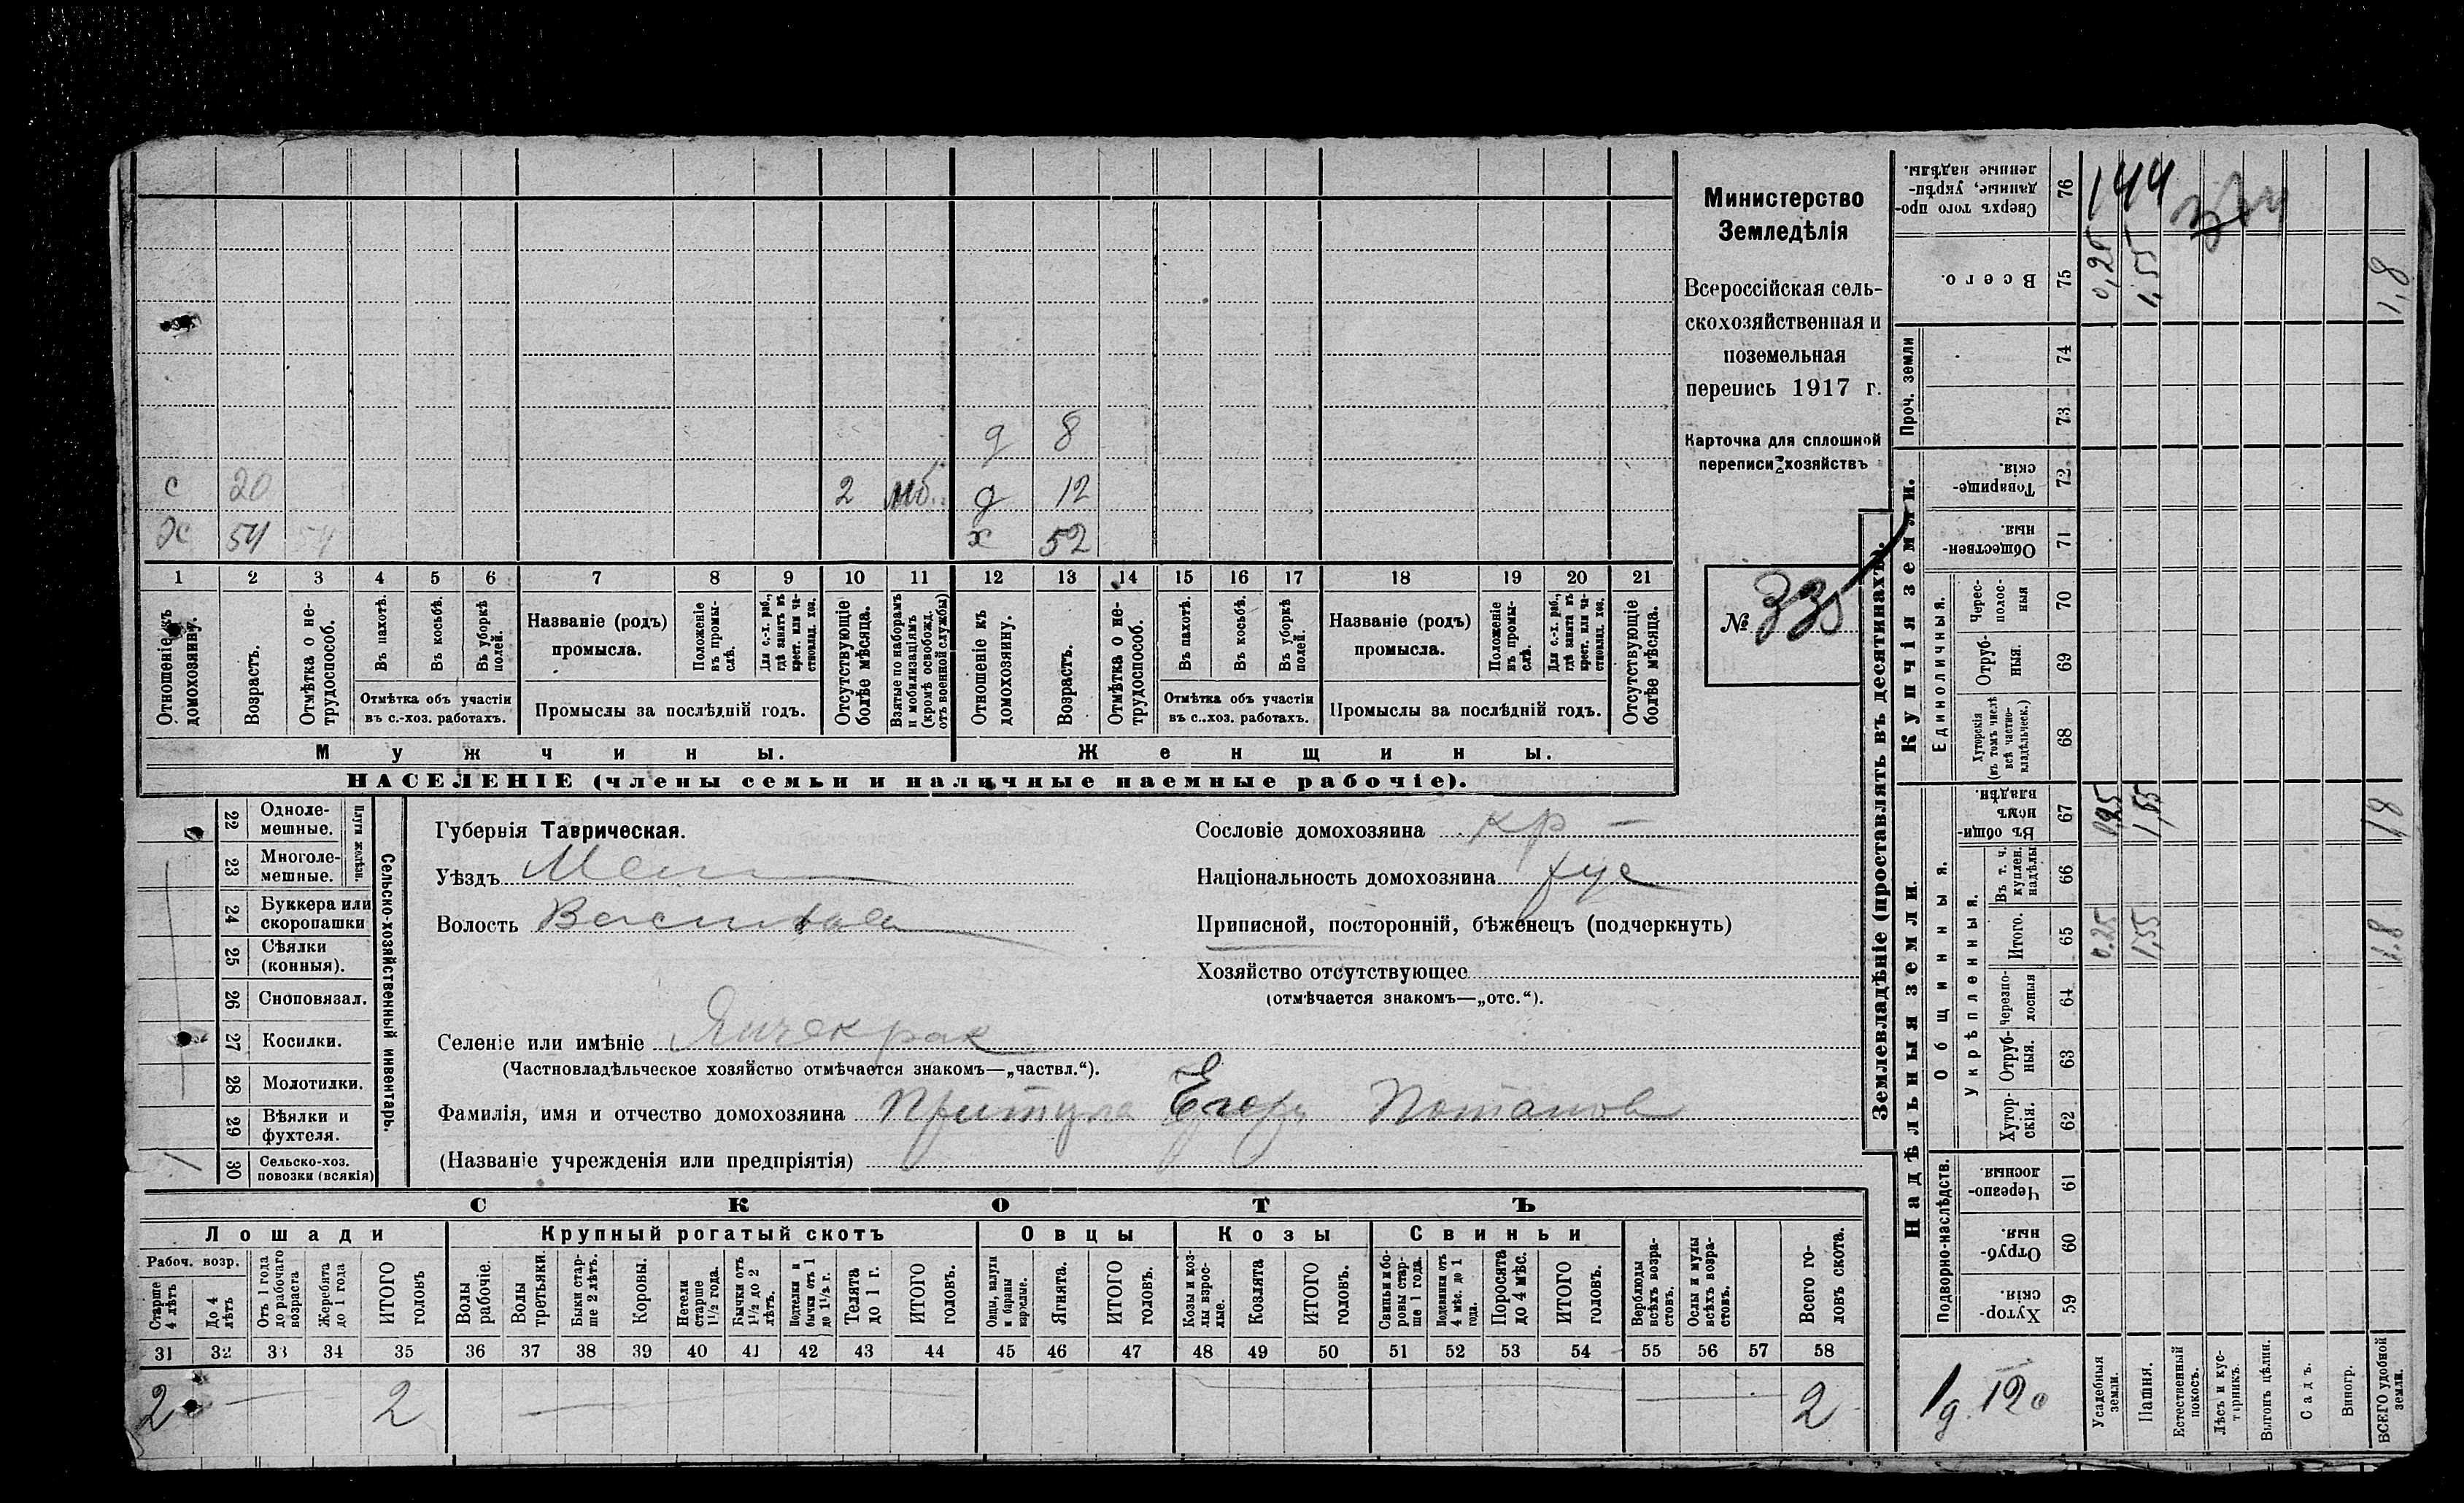 Министерство
Земледѣлія
Всероссійская сель-
скохозяйственная и
поземельная
перепись 1917 г.
Карточка для сплошной
переписи хозяйствъ
№ 335
х 52
с 20 2 мб. д 12
х 54 54
д 8
1 2 3 4 5 6 7 8 9 10 11 12 13 14 15 16 17 18 19 20 21
Отношеніе къ домохозяину.
Возрастъ.
Отмѣтка о не-трудоспособ.
Въ пахотѣ.
Въ косьбѣ.
Въ уборкѣ полей.
Отмѣтка объ участіи
въ с.-хоз. работахъ.
Названіе (родъ)
промысла.
Положеніе въ промы-слѣ.
Для с.-х. раб., гдѣ занятъ въ крест. или ча-стновлад. хоз.
Промыслы за послѣдній годъ.
Отсутствующіе болѣе мѣсяца.
Взятые по наборамъ и мобилизаціямъ (кромѣ освобожд. отъ военной службы)
Отношеніе къ домохозяину.
Возрастъ.
Отмѣтка о не-трудоспособ.
Въ пахотѣ.
Въ косьбѣ.
Въ уборкѣ полей.
Отмѣтка объ участіи
въ с.-хоз. работахъ.
Названіе (родъ)
промысла.
Положеніе въ промы-слѣ.
Для с.-х. раб., гдѣ занята въ крест. или ча-стновлад. хоз.
Промыслы за послѣдній годъ.
Отсутствующіе болѣе мѣсяца.
Мужчины. Женщины.
НАСЕЛЕНІЕ (члены семьи и наличные наемные рабочіе).
Сельско-хозяйственный инвентарь.
Плуги желѣзн.
22 Одноле-мешные.
23 Многоле-мешные.
24 Буккера или скоропашки
25 Сѣялки (конныя).
26 Сноповязал.
27 Косилки.
28 Молотилки.
29 Вѣялки и фухтеля.
30 Сельско-хоз. повозки (всякія)
Губернія Таврическая.
Уѣздъ Мел
Волость Васильев
Селеніе или имѣніе Янчекрак
(Частновладѣльческое хозяйство отмѣчается знакомъ—„частвл.“).
Фамилія, имя и отчество домохозяина Притула Егоръ Потапов
(Названіе учрежденія или предпріятія)
Сословіе домохозяина кр
Національность домохозяина рус
Приписной, посторонній, бѣженецъ (подчеркнуть)
Хозяйство отсутствующее
(отмѣчается знакомъ—„отс.“).
СКОТЪ
Лошади Крупный рогатый скотъ Овцы Козы Свиньи
Рабоч. возр.
Старше 4 лѣтъ
До 4 лѣтъ
Отъ 1 года до рабочаго возраста
Жеребята до 1 года
ИТОГО головъ
Волы рабочіе.
Волы третьяки.
Быки стар-ше 2 лѣтъ.
Коровы.
Нетели старше 1½ года.
Бычки отъ 1½ до 2 лѣтъ.
Подтелки и бычки отъ 1 до 1½ г.
Телята до 1 г.
ИТОГО головъ.
Овцы, валухи и бараны взрослые.
Ягнята.
ИТОГО головъ.
Козы и коз-лы взрос-лые.
Козлята
ИТОГО головъ.
Свиньи и бо-ровы стар-ше 1 года.
Подсвинки отъ 4 мѣс. до 1 года.
Поросята до 4 мѣс.
ИТОГО головъ.
Верблюды всѣхъ возра-стовъ.
Ослы и мулы всѣхъ возра-стовъ.
Всего го-ловъ скота.
31 32 33 34 35 36 37 38 39 40 41 42 43 44 45 46 47 48 49 50 51 52 53 54 55 56 57 58
2 2 2
Землевладѣніе (проставлять въ десятинахъ).
Купчія земли.
Надѣльныя земли.
Сверхъ того про-данные, укрѣп-ленные надѣлы. 76
Всего. 75 0,25 1,55 1,8
Проч. земли 74 73
Товарище-скія. 72
Обществен-ныя. 71
Единоличныя.
Черес-полос-ныя 70
Отруб-ныя. 69
Хуторскія (въ томъ числѣ всѣ частно-владѣльческ.) 68
Общинныя.
Въ общин-номъ владѣн. 67 0,25 1,55 1,8
Укрѣпленныя.
Въ т. ч. куплен. надѣлы 66
Итого. 65 0.25 1,55 1.8
Черезпо-лосныя 64
Отруб-ныя. 63
Хутор-скія. 62
Подворно-наслѣдств.
Черезпо-лосныя. 61
Отруб-ныя. 60
Хутор-скія. 59
144
1д. 120
Усадебныя земли.
Пашня.
Естественный покосъ.
Лѣсъ и кус-тарникъ.
Выгонъ цѣлин.
Садъ.
Виногр.
ВСЕГО удобной земли.